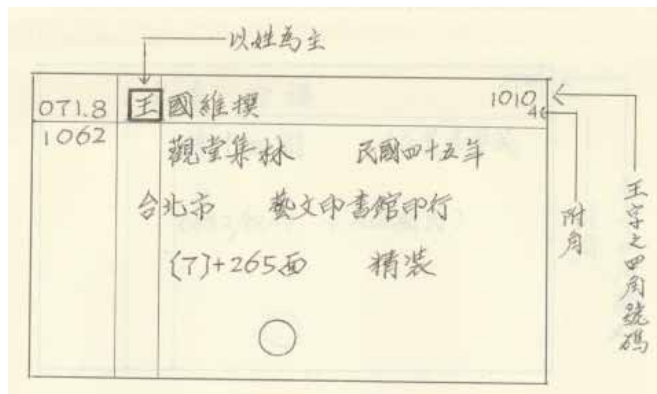 以姓為主
071.8 王國維撰 1010₄₆
1062
觀堂集林 民國四十五年
台北市 藝文印書館印行
{7}+265面 精裝
附角
王字之四角號碼